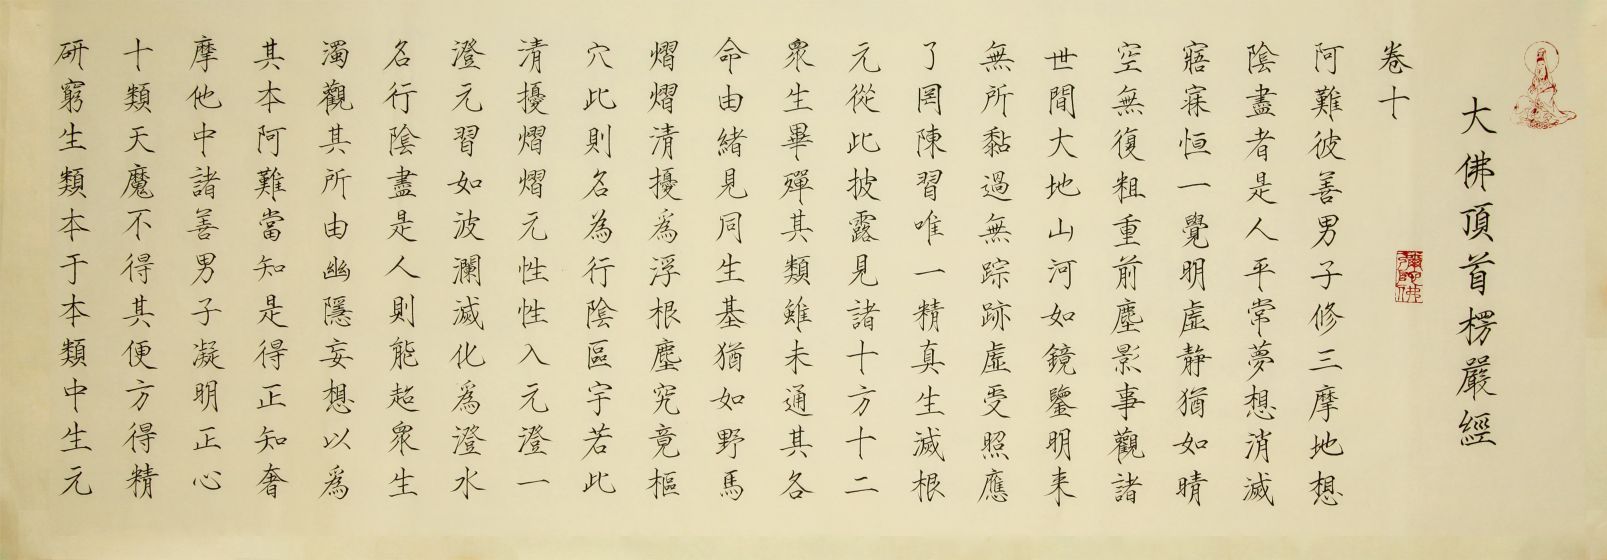 大佛頂首楞嚴經
卷十
阿難彼善男子修三摩地想
陰盡者是人平常夢想消滅
寤寐恒一覺明虛靜猶如晴
空無復粗重前塵影事觀諸
世間大地山河如鏡鑒明来
無所黏過無踪跡虛受照應
了罔陳習唯一精真生滅根
元從此披露見諸十方十二
衆生畢殫其類雖未通其各
命由緒見同生基猶如野馬
熠熠清擾爲浮根塵究竟樞
穴此則名為行陰區宇若此
清擾熠熠元性性入元澄一
澄元習如波瀾滅化爲澄水
名行陰盡是人則能超衆生
濁觀其所由幽隱妄想以爲
其本阿難當知是得正知奢
摩他中諸善男子凝明正心
十類天魔不得其便方得精
研窮生類本于本類中生元